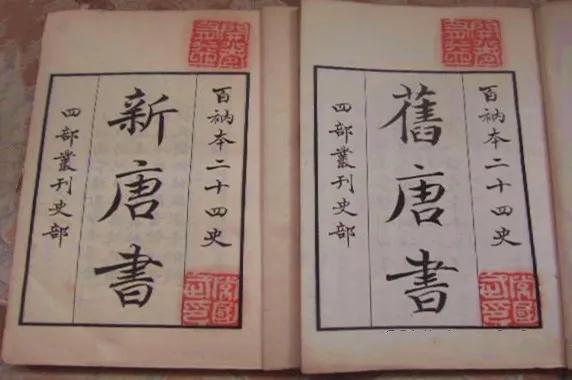 開卷有益
百衲本二十四史
舊唐書
四部叢刊史部
開卷有益
百衲本二十四史
新唐書
四部叢刊史部